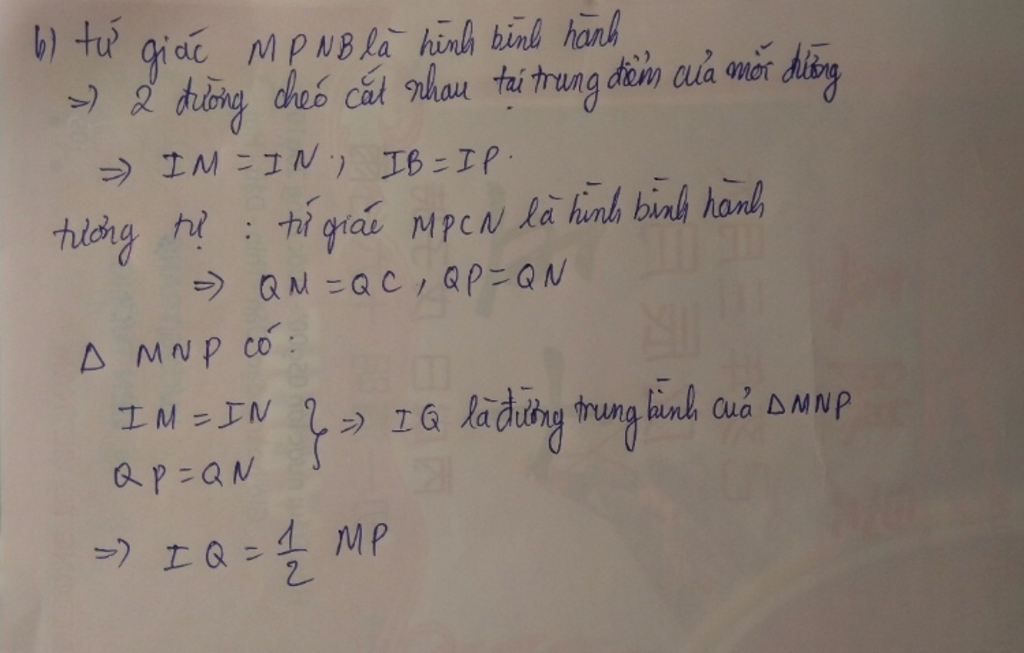 b) tứ giác MPNB là hình bình hành
=> 2 đường chéo cắt nhau tại trung điểm của mỗi đường
=> IM = IN, IB = IP.
tương tự : tứ giác MPCN là hình bình hành
=> QM = QC, QP = QN
Δ MNP có:
IM = IN } => IQ là đường trung bình của Δ MNP
QP = QN
=> IQ = 1/2 MP